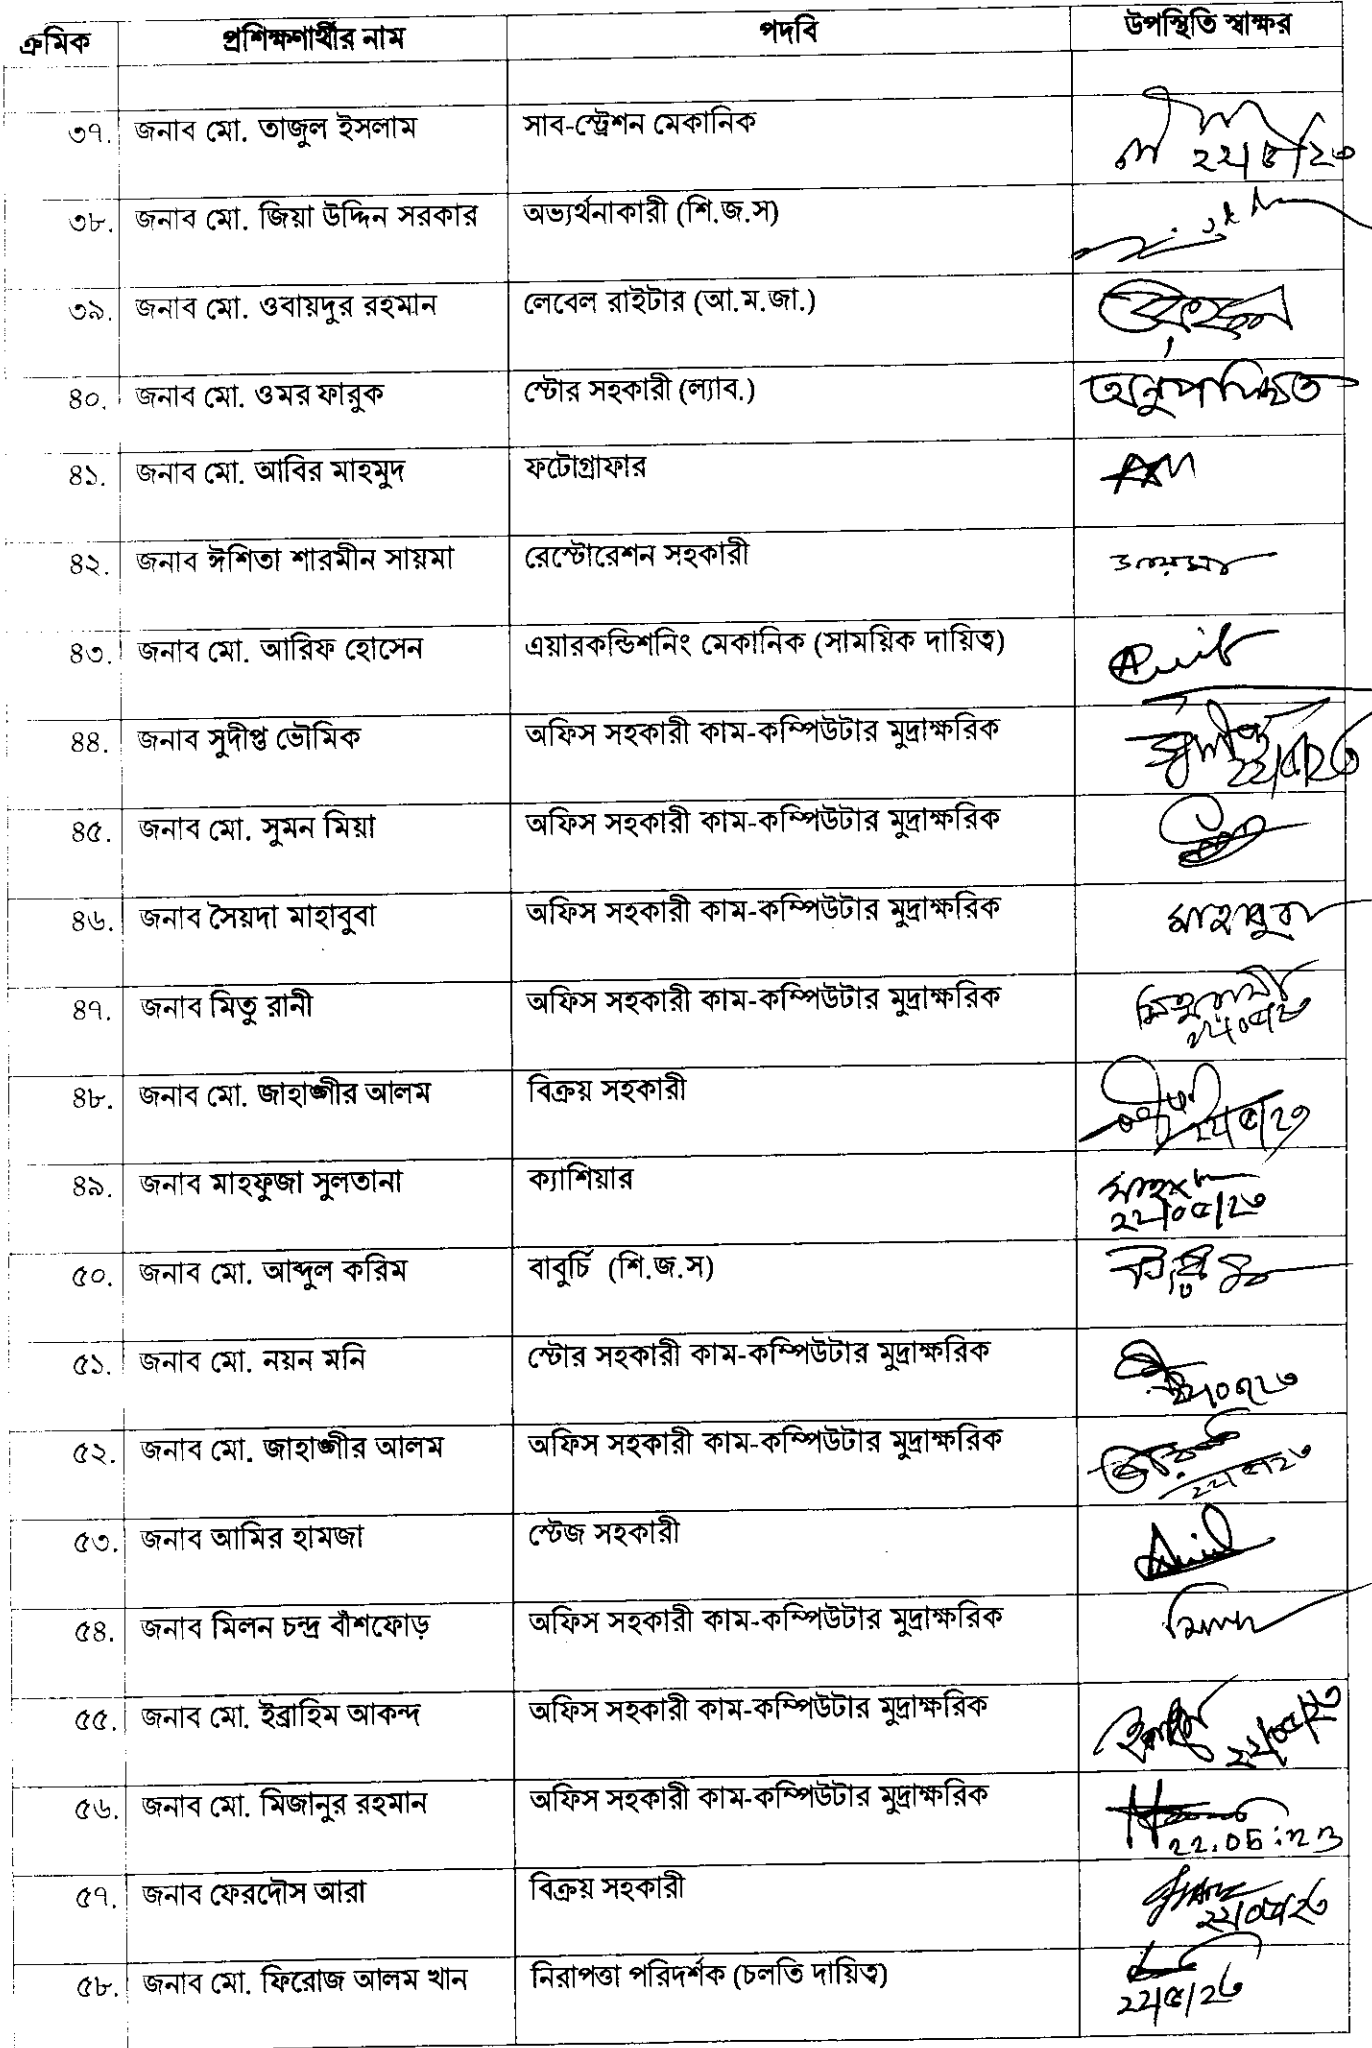 ক্রমিক প্রশিক্ষণার্থীর নাম পদবি উপস্থিতি স্বাক্ষর
৩৭. জনাব মো. তাজুল ইসলাম সাব-স্ট্রেশন মেকানিক ২২/৫/২৩
৩৮. জনাব মো. জিয়া উদ্দিন সরকার অভ্যর্থনাকারী (শি.জ.স)
৩৯. জনাব মো. ওবায়দুর রহমান লেবেল রাইটার (আ.ম.জা.)
৪০. জনাব মো. ওমর ফারুক স্টোর সহকারী (ল্যাব.) অনুপস্থিত
৪১. জনাব মো. আবির মাহমুদ ফটোগ্রাফার
৪২. জনাব ঈশিতা শারমীন সায়মা রেস্টোরেশন সহকারী সায়মা
৪৩. জনাব মো. আরিফ হোসেন এয়ারকন্ডিশনিং মেকানিক (সাময়িক দায়িত্ব) Arif
৪৪. জনাব সুদীপ্ত ভৌমিক অফিস সহকারী কাম-কম্পিউটার মুদ্রাক্ষরিক সুদীপ্ত ২২/৫/২৩
৪৫. জনাব মো. সুমন মিয়া অফিস সহকারী কাম-কম্পিউটার মুদ্রাক্ষরিক
৪৬. জনাব সৈয়দা মাহাবুবা অফিস সহকারী কাম-কম্পিউটার মুদ্রাক্ষরিক মাহাবুবা
৪৭. জনাব মিতু রানী অফিস সহকারী কাম-কম্পিউটার মুদ্রাক্ষরিক মিতু রানী
২২/০৫/২৩
৪৮. জনাব মো. জাহাঙ্গীর আলম বিক্রয় সহকারী ২২/৫/২৩
৪৯. জনাব মাহফুজা সুলতানা ক্যাশিয়ার
২২/০৫/২৩
৫০. জনাব মো. আব্দুল করিম বাবুর্চি (শি.জ.স)
৫১. জনাব মো. নয়ন মনি স্টোর সহকারী কাম-কম্পিউটার মুদ্রাক্ষরিক
৫২. জনাব মো. জাহাঙ্গীর আলম অফিস সহকারী কাম-কম্পিউটার মুদ্রাক্ষরিক
২২/৫/২৩
৫৩. জনাব আমির হামজা স্টেজ সহকারী
৫৪. জনাব মিলন চন্দ্র বাঁশফোড় অফিস সহকারী কাম-কম্পিউটার মুদ্রাক্ষরিক মিলন
৫৫. জনাব মো. ইব্রাহিম আকন্দ অফিস সহকারী কাম-কম্পিউটার মুদ্রাক্ষরিক ২২/০৫/২৩
৫৬. জনাব মো. মিজানুর রহমান অফিস সহকারী কাম-কম্পিউটার মুদ্রাক্ষরিক
22.05.23
৫৭. জনাব ফেরদৌস আরা বিক্রয় সহকারী
২২/০৫/২৩
৫৮. জনাব মো. ফিরোজ আলম খান নিরাপত্তা পরিদর্শক (চলতি দায়িত্ব)
২২/৫/২৩